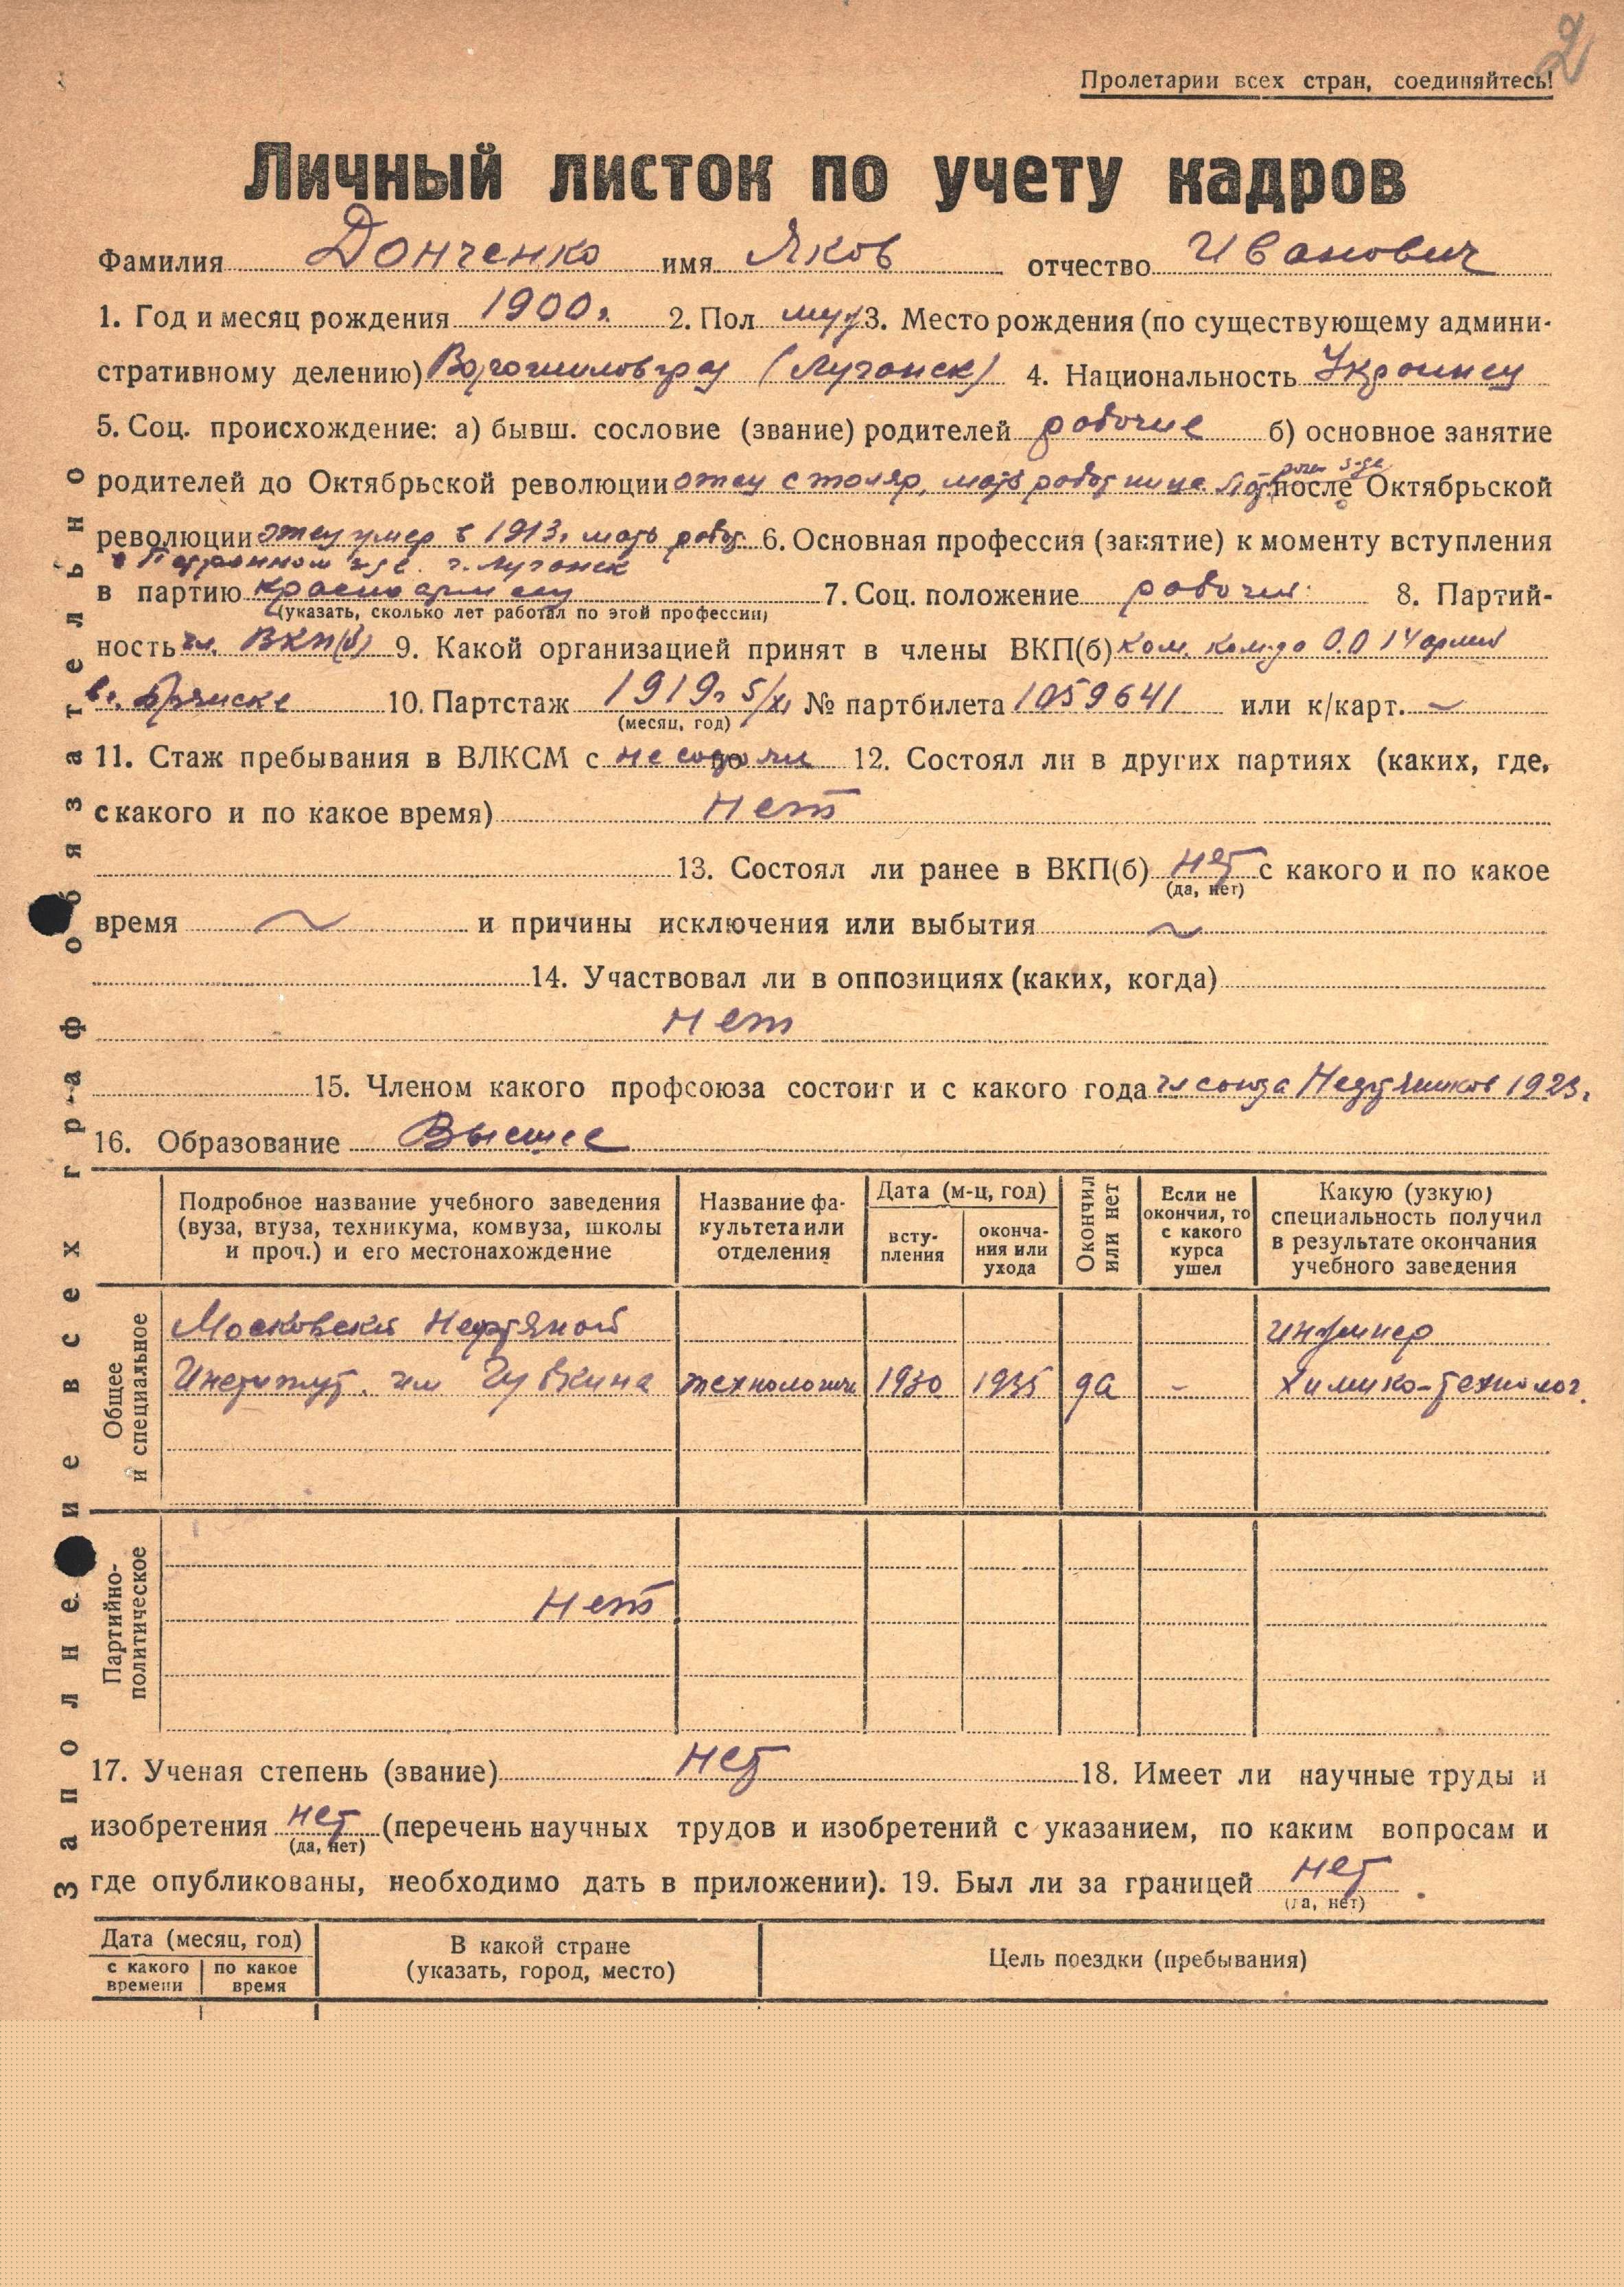 2
Пролетарии всех стран, соединяйтесь!
Личный листок по учету кадров
Фамилия Донченко имя Яков отчество Иванович
1. Год и месяц рождения 1900г. 2. Пол муж 3. Место рождения (по существующему админи-
стративному делению) Ворошиловград (Луганск) 4. Национальность Украинец
5. Соц. происхождение: а) бывш. сословие (звание) родителей рабочие б) основное занятие
родителей до Октябрьской революции отец столяр, мать работница после Октябрьской
революции отец умер в 1913г. мать работ. 6. Основная профессия (занятие) к моменту вступления
в Патронном з-де. г. Луганск
в партию красноармеец 7. Соц. положение рабочий 8. Партий-
(указать, сколько лет работал по этой профессии)
ность чл. ВКП(б) 9. Какой организацией принят в члены ВКП(б) ком. О.О 14 армии
в г. Брянске 10. Партстаж 1919г 5/XI № партбилета 1059641 или к/карт. ~
(месяц, год)
11. Стаж пребывания в ВЛКСМ с не состоял по 12. Состоял ли в других партиях (каких, где,
с какого и по какое время) Нет
13. Состоял ли ранее в ВКП(б) нет с какого и по какое
(да, нет)
время ~ и причины исключения или выбытия ~
14. Участвовал ли в оппозициях (каких, когда)
Нет
15. Членом какого профсоюза состоит и с какого года чл союза Нефтяников 1923г.
16. Образование Высшее
Подробное название учебного заведения (вуза, втуза, техникума, комвуза, школы и проч.) и его местонахождение
Название факультета или отделения
Дата (м-ц, год)
вступления
окончания или ухода
Окончил или нет
Если не окончил, то с какого курса ушел
Какую (узкую) специальность получил в результате окончания учебного заведения
Общее и специальное
Московский Нефтяной инженер
Институт. им Губкина технологич 1930 1935 да - химико-технолог.
Партийно-политическое
Нет
17. Ученая степень (звание) нет 18. Имеет ли научные труды и
изобретения нет (перечень научных трудов и изобретений с указанием, по каким вопросам и
(да, нет)
где опубликованы, необходимо дать в приложении). 19. Был ли за границей нет
(да, нет)
Дата (месяц, год)
с какого времени
по какое время
В какой стране (указать, город, место)
Цель поездки (пребывания)
Заполнение всех граф обязательно